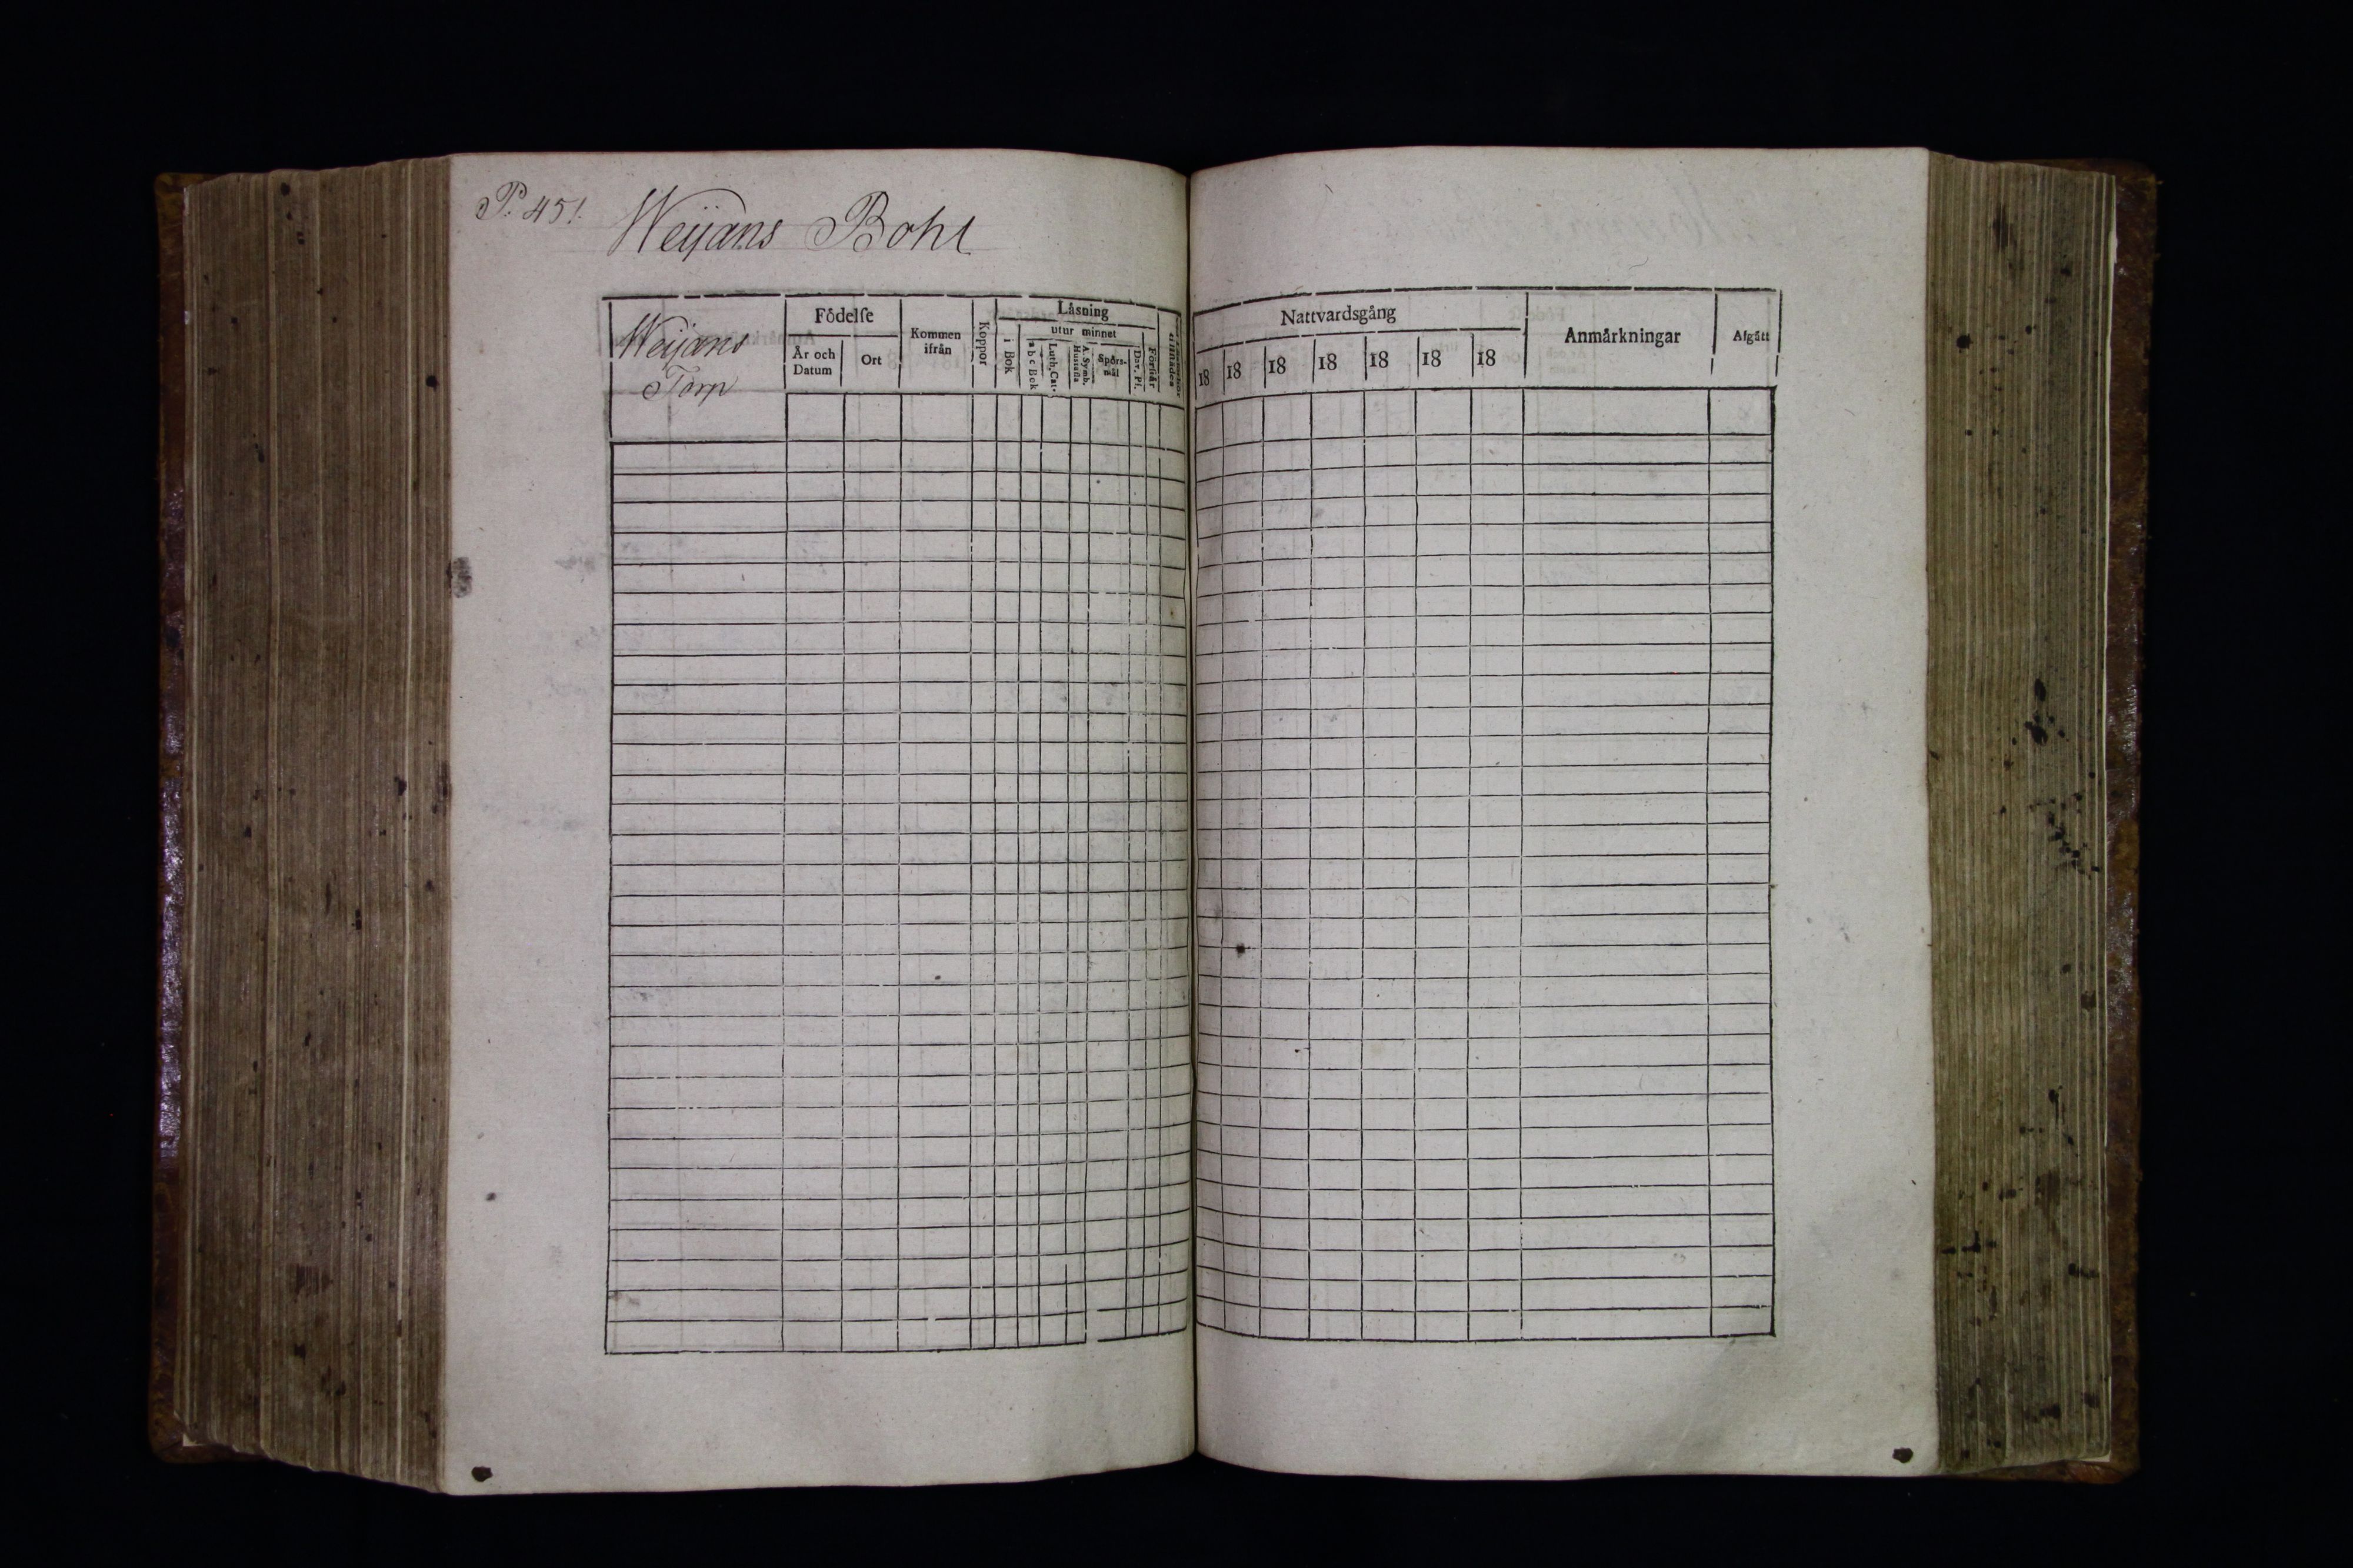 P. 451.
Weijans Bohl
Weijans
Torp
Födelse
År och
Datum
Ort
Kommen
ifrån
Koppor
Läsning
utur minnet
i Bok
a b c Bok
Luth. Cat.
A. Symb.
Hustafla
Spörs-
mål
Dav. Ps.
Förstår
Nattvardsgång
18 18 18 18 18 18 18
Anmärkningar
Afgått